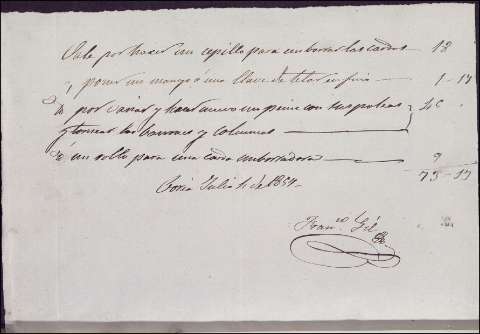 Vale por hacer un cepillo para emborrar las cardas 13
poner un mango á una llave de telar 1-17
por y hacer nuevo un peine con sus puas 40
y tornear las y columnas
un rollo para una carda emborradora 9
73-17
Soria Julio de 1854
Franco. Gil